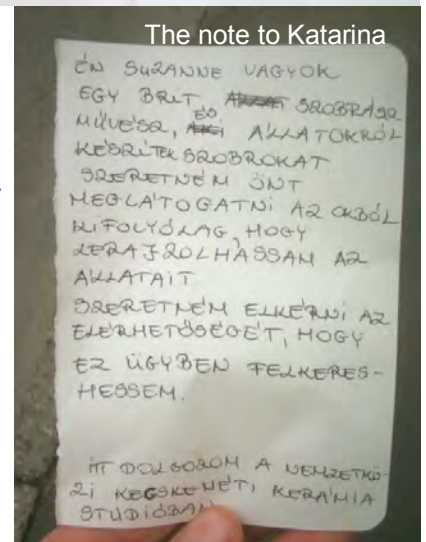 The note to Katarina
ÉN SUZANNE VAGYOK
EGY BRIT SZOBRÁSZ
MŰVÉSZ, ÉS ÁLLATOKRÓL
KÉSZÍTEK SZOBROKAT
SZERETNÉM ÖNT
MEGLÁTOGATNI AZ OKBÓL
KIFOLYÓLAG, HOGY
LERAJZOLHASSAM AZ
ÁLLATAIT.
SZERETNÉM ELKÉRNI AZ
ELÉRHETŐSÉGÉT, HOGY
EZ ÜGYBEN FELKERES-
HESSEM.
ITT DOLGOZOM A NEMZETKÖ-
ZI KECSKEMÉTI KERÁMIA
STÚDIÓBAN